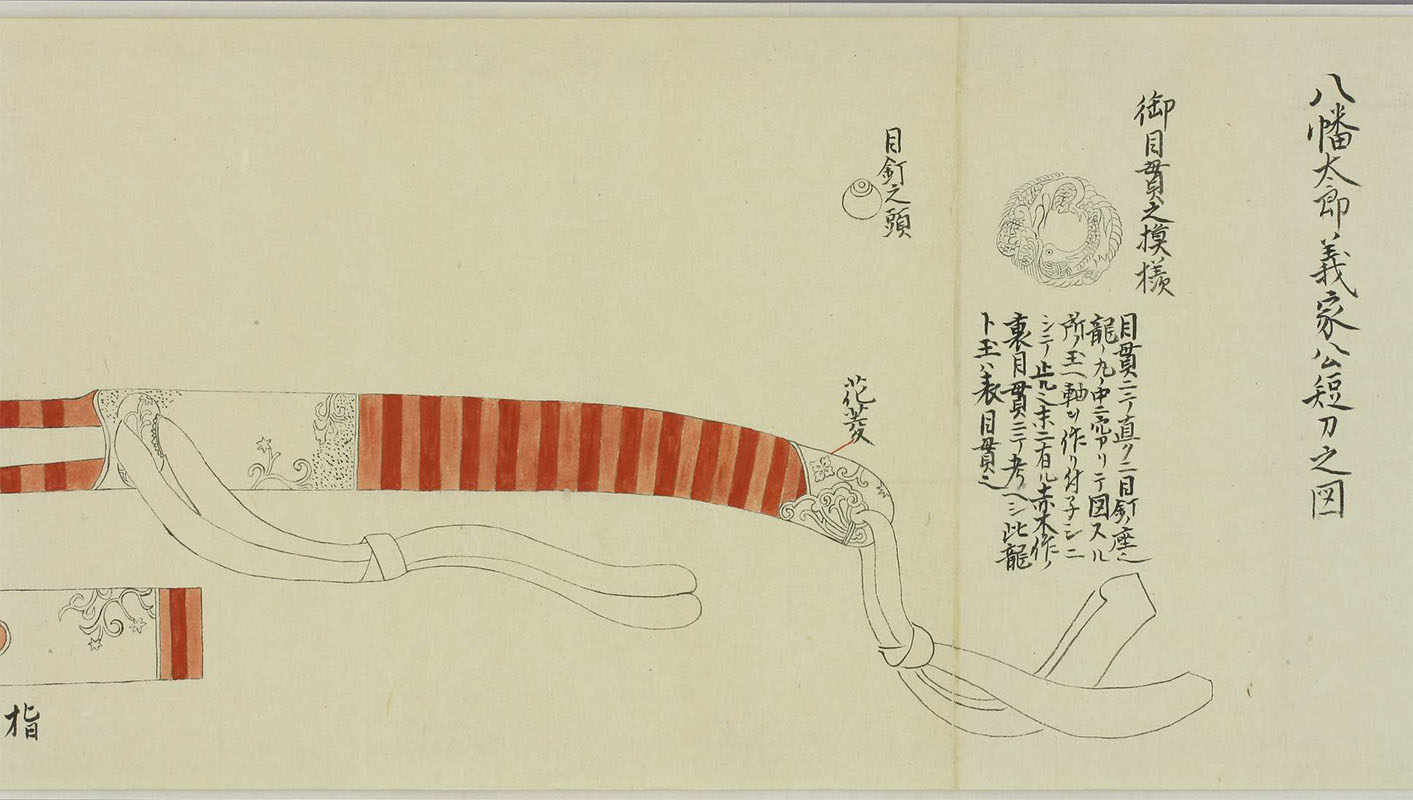 八幡太郎義家公短刀之図
御目貫之摸様
目貫ニテ直クニ目釘ノ座ニ
龍ノ丸ノ中ニ壳アリテ図スル
所ノ玉ヘ軸ヲ作リ付テシニ
シテ止ル之末ニ有ル赤木作リ
裏目貫ニテ考ヘシ此龍
ト玉ハ表目貫之
目釘之頭
花菱
指